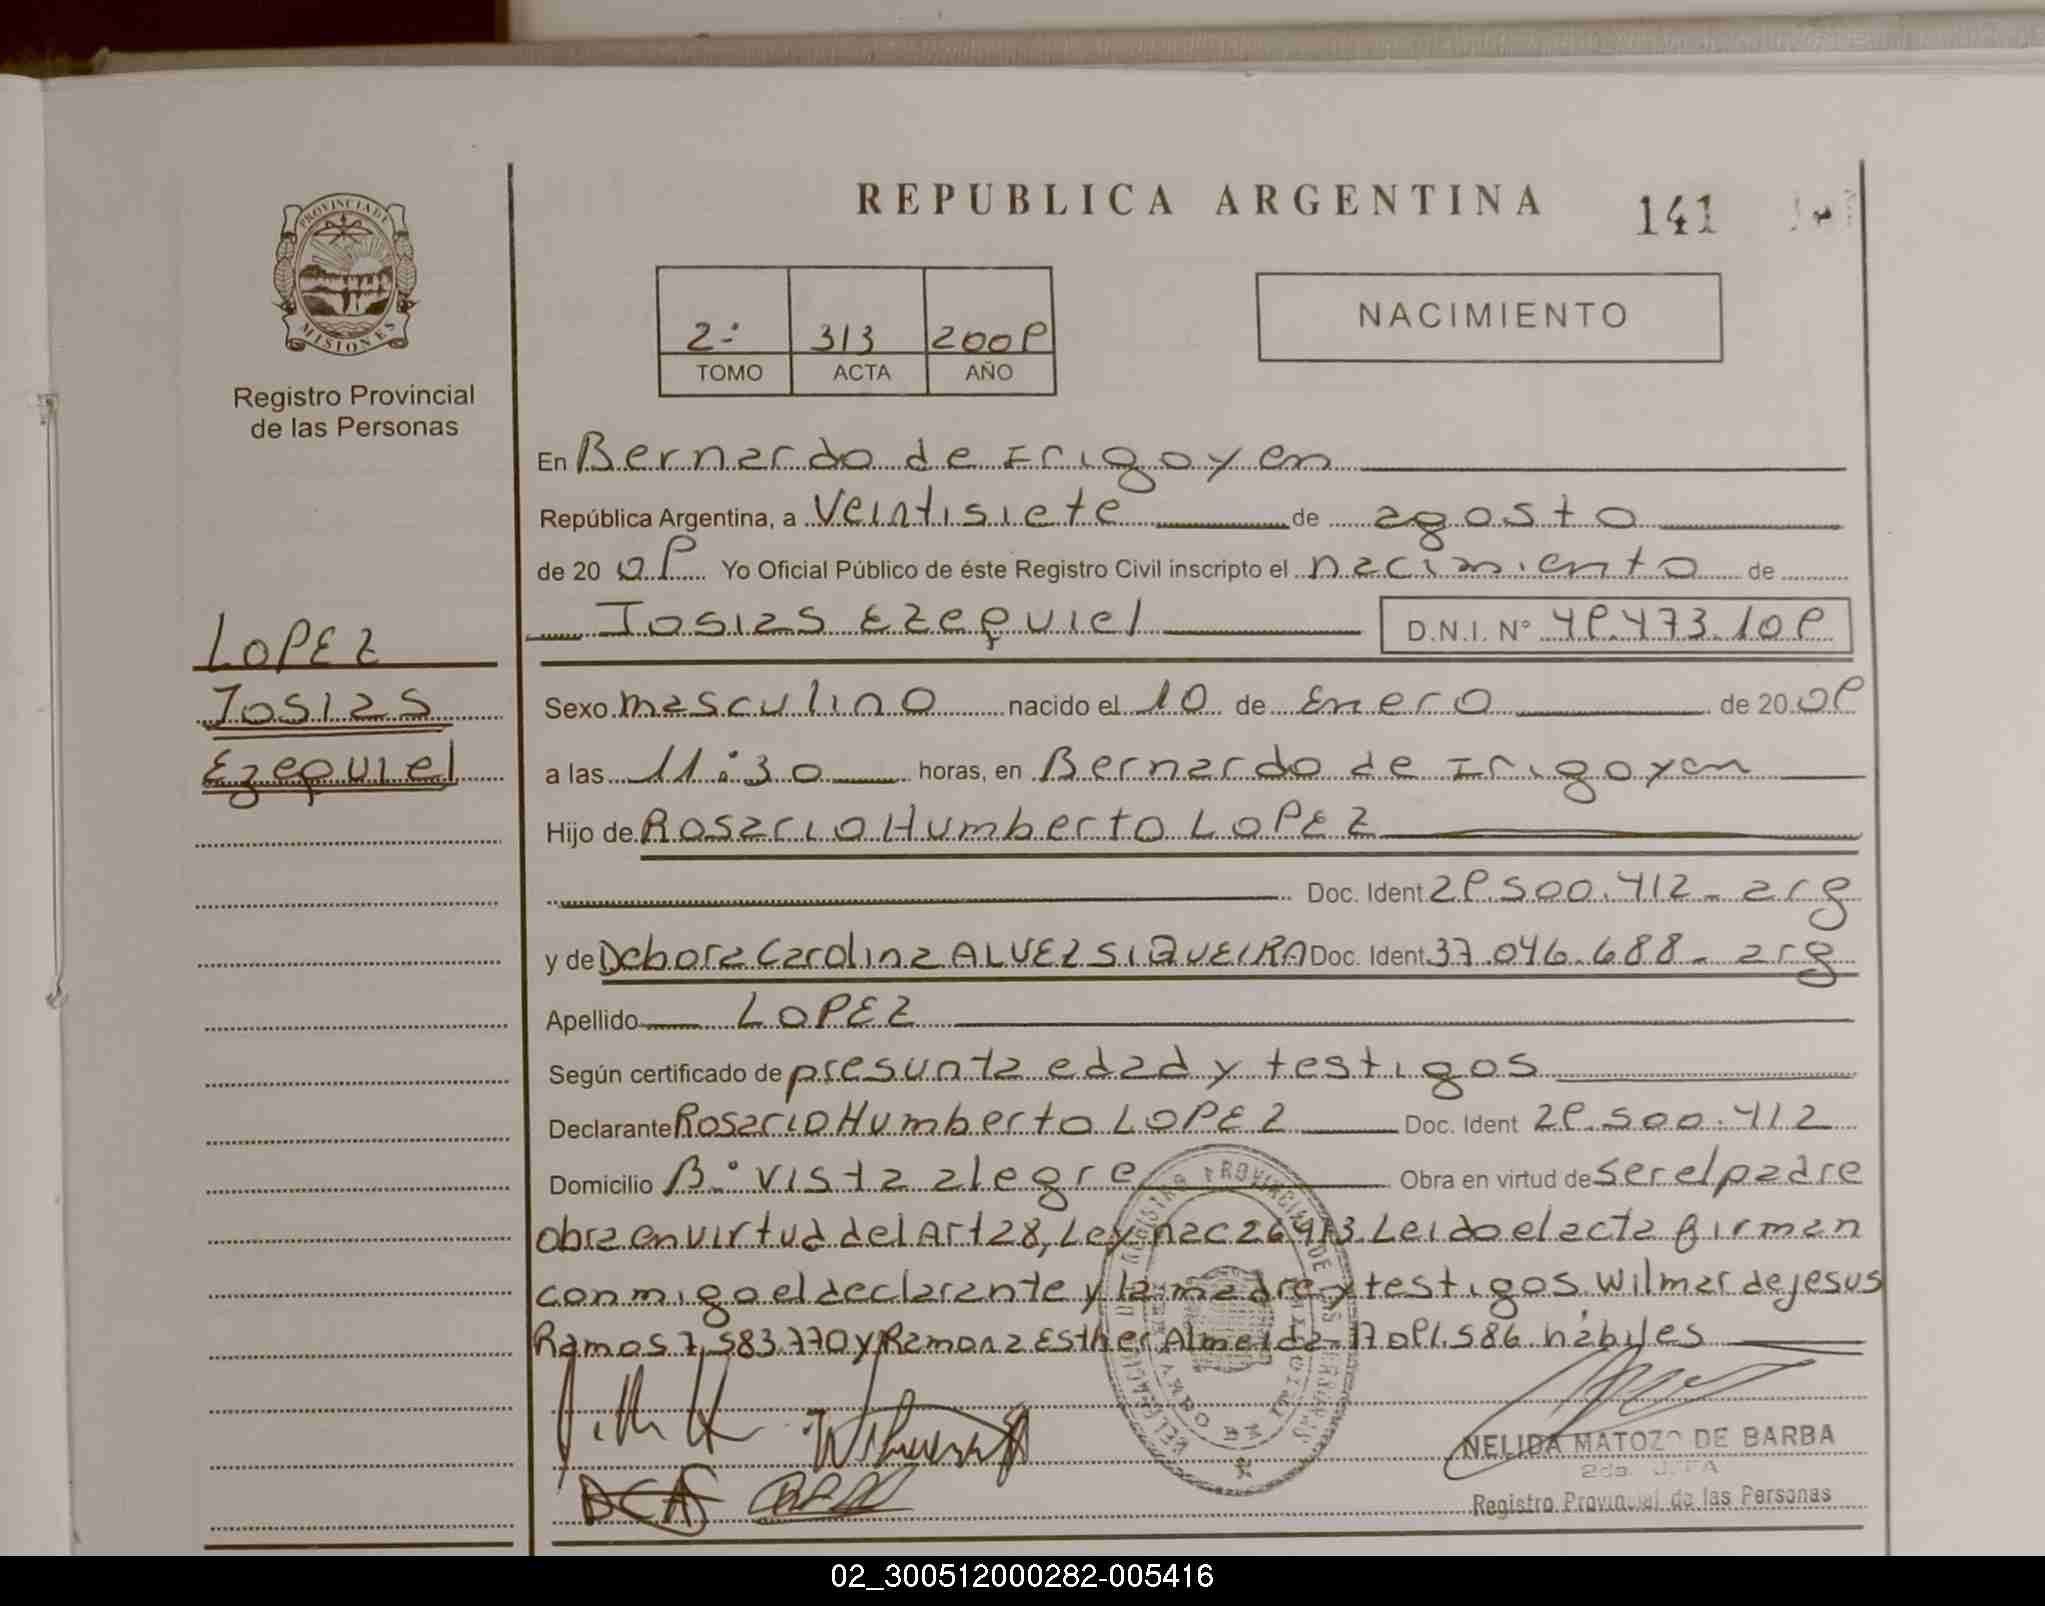 REPUBLICA ARGENTINA
141
PROVINCIA DE
MISIONES
Registro Provincial
de las Personas
2º 313 2009
TOMO ACTA AÑO
NACIMIENTO
En Bernardo de Irigoyen
República Argentina, a Veintisiete de agosto
de 20 09 Yo Oficial Público de éste Registro Civil inscripto el nacimiento de
Josias Ezequiel D.N.I. Nº 49.473.109
LOPEZ
Josias
Ezequiel
Sexo masculino nacido el 10 de Enero de 20 09
a las 11:30 horas, en Bernardo de Irigoyen
Hijo de Rosario Humberto LOPEZ
Doc. Ident 29.500.412 - arg
y de Debora Carolina ALVEZ SIQUEIRA Doc. Ident 37.046.688 - arg
Apellido LOPEZ
Según certificado de presunta edad y testigos
Declarante Rosario Humberto LOPEZ Doc. Ident 29.500.412
Domicilio Bº Vista alegre Obra en virtud de ser el padre
obra en virtud del Art 28, Ley nac 26413. Leido el acta firman
conmigo el declarante y la madre y testigos Wilmar de jesus
Ramos 7.583.770 y Ramona Esther Almeida 17.091.586 hábiles
NELIDA MATOZO DE BARBA
2da. JEFA
Registro Provincial de las Personas
02_300512000282-005416